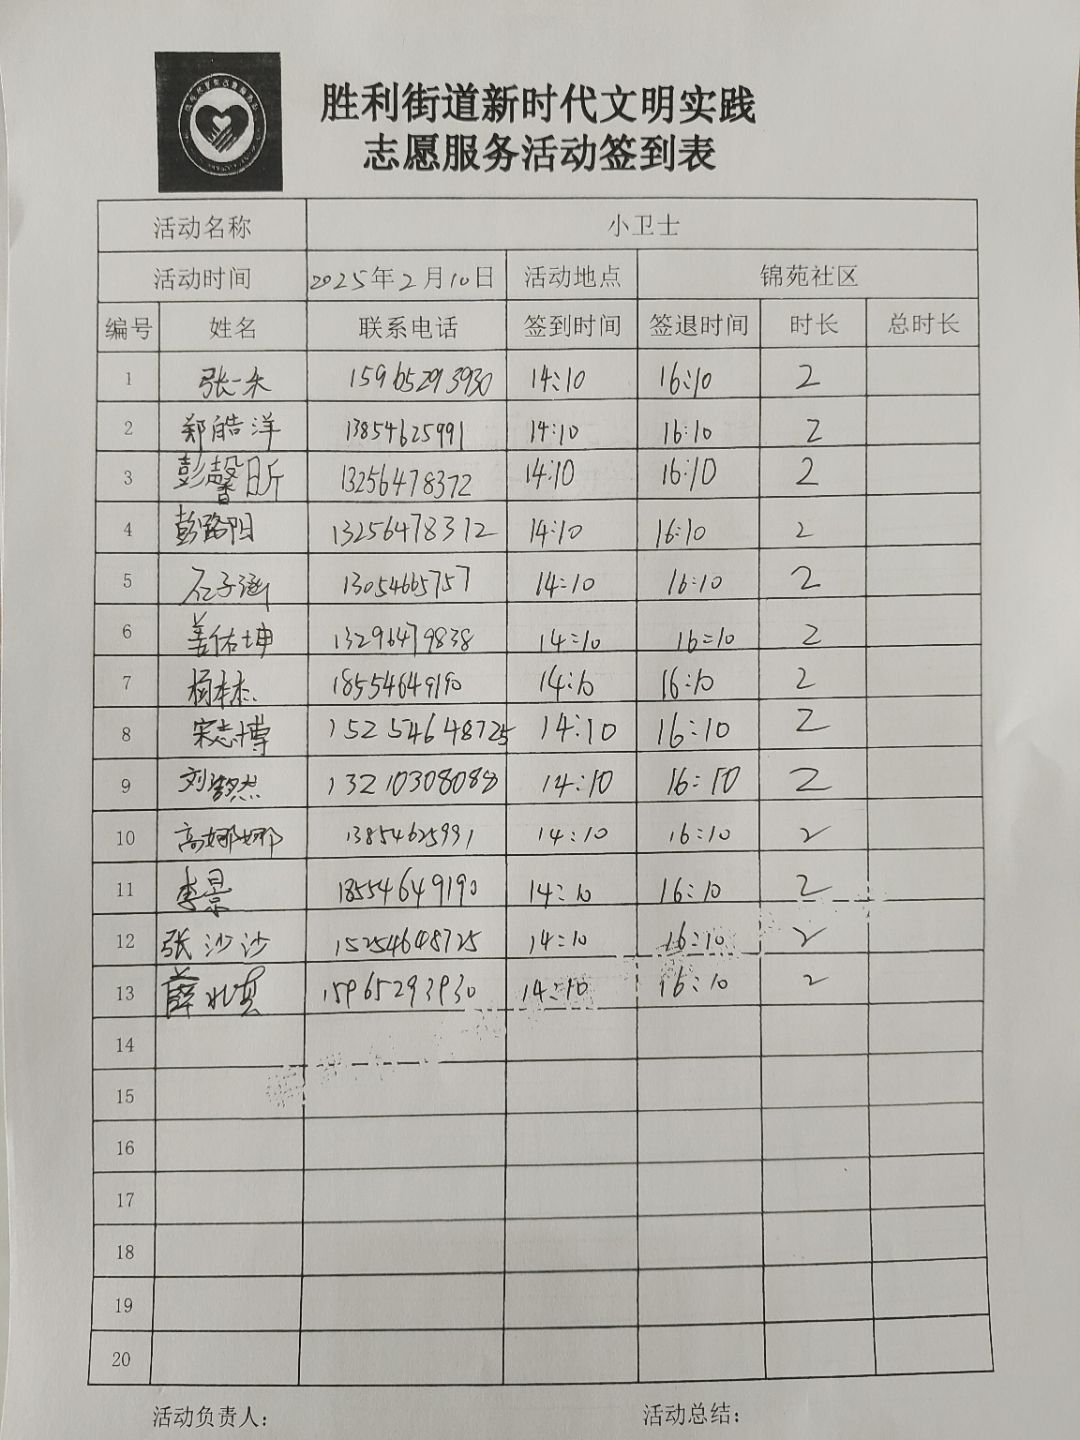 胜利街道新时代文明实践
志愿服务活动签到表
活动名称 小卫士
活动时间 2025年2月10日 活动地点 锦苑社区
编号 姓名 联系电话 签到时间 签退时间 时长 总时长
1 张一禾 15965293930 14:10 16:10 2
2 郑皓洋 13854625991 14:10 16:10 2
3 彭馨昕 13256478372 14:10 16:10 2
4 彭路阳 13256478312 14:10 16:10 2
5 石子涵 13054665757 14:10 16:10 2
6 姜佑坤 13296479838 14:10 16:10 2
7 杨本杰 18554649190 14:10 16:10 2
8 宋志博 15254648725 14:10 16:10 2
9 刘 杰 13210308088 14:10 16:10 2
10 高娜娜 13854625991 14:10 16:10 2
11 李景 18554649190 14:10 16:10 2
12 张沙沙 15254648725 14:10 16:10 2
13 薛 15965293930 14:10 16:10 2
14
15
16
17
18
19
20
活动负责人: 活动总结: